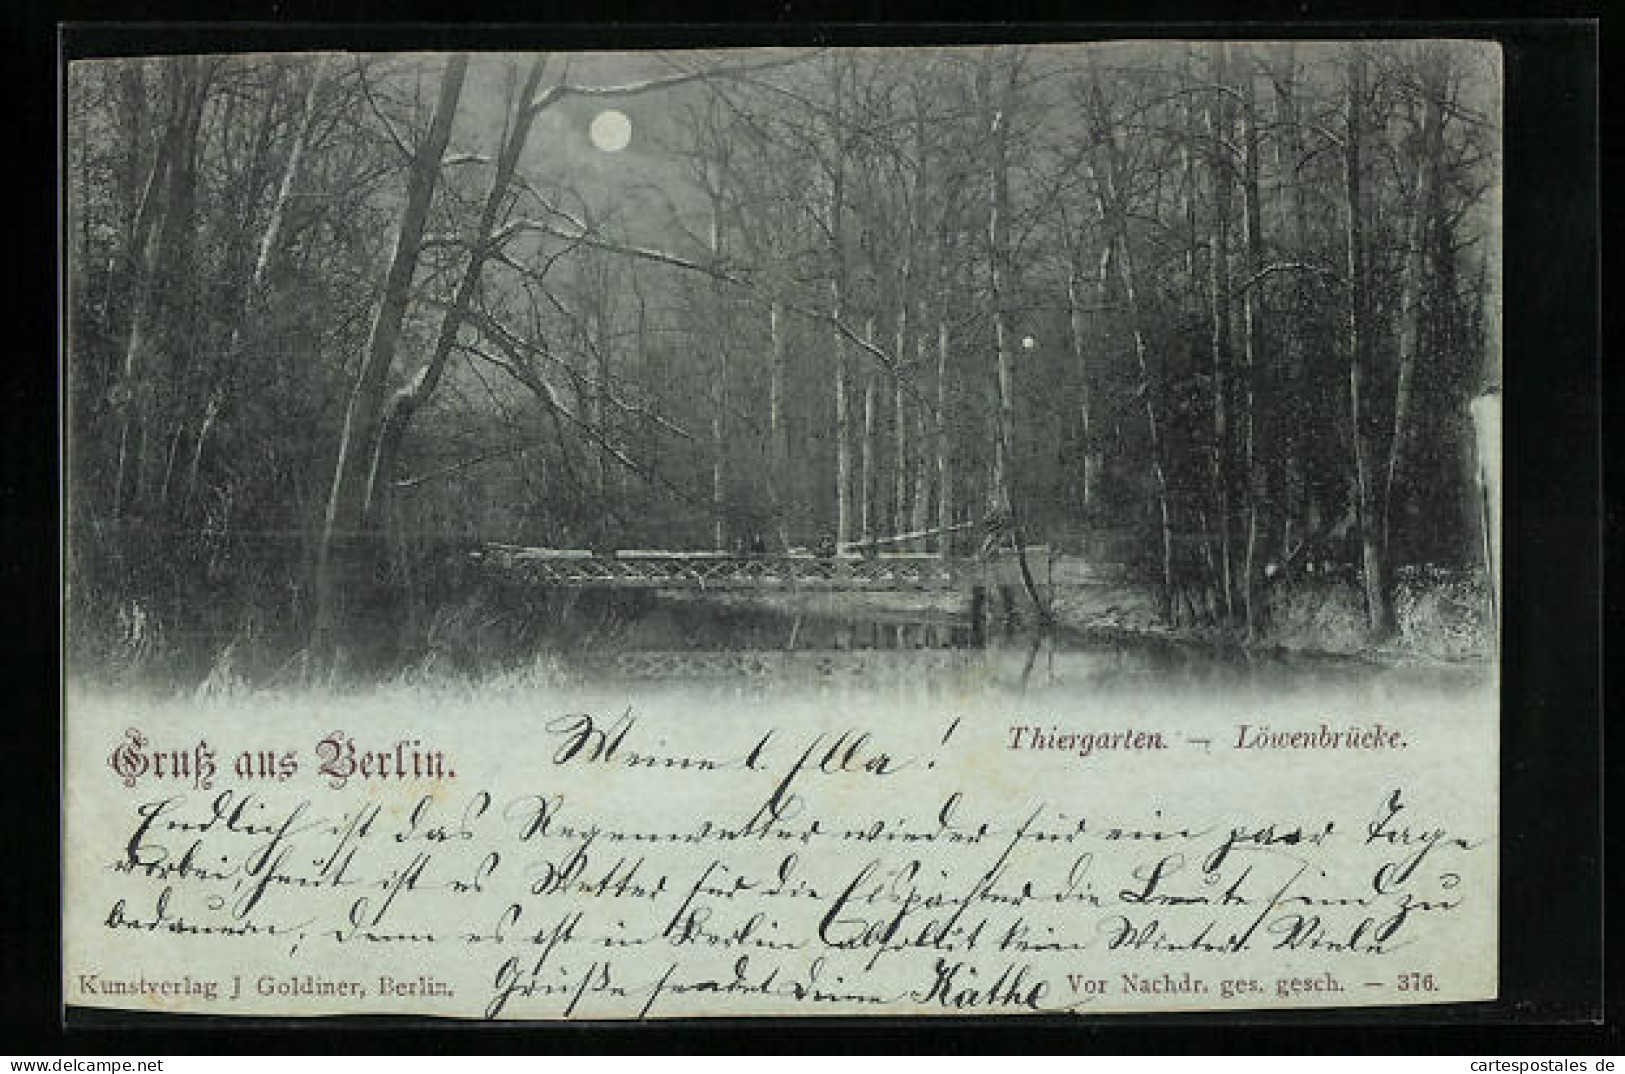 Gruß aus Berlin.
Meine l. Ella!
Thiergarten. — Löwenbrücke.
Endlich ist das Regenwetter wieder für ein paar Tage
vorbei, heut ist es Wetter für die Eispächter die Leute sind zu
bedauern, denn es ist in Berlin absolut kein Winter. Viele
Grüße sendet Deine Käthe
Kunstverlag J Goldiner, Berlin.
Vor Nachdr. ges. gesch. — 376.
cartespostales de
www.cartespostales.com